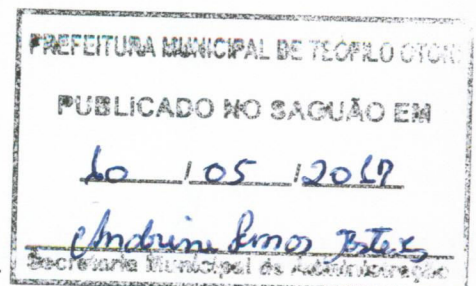 PREFEITURA MUNICIPAL DE TEÓFILO OTONI
PUBLICADO NO SAGUÃO EM
10 / 05 / 2017
Secretaria Municipal de Administração